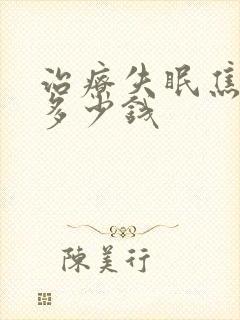 治療失眠焦
多少錢
陳美行